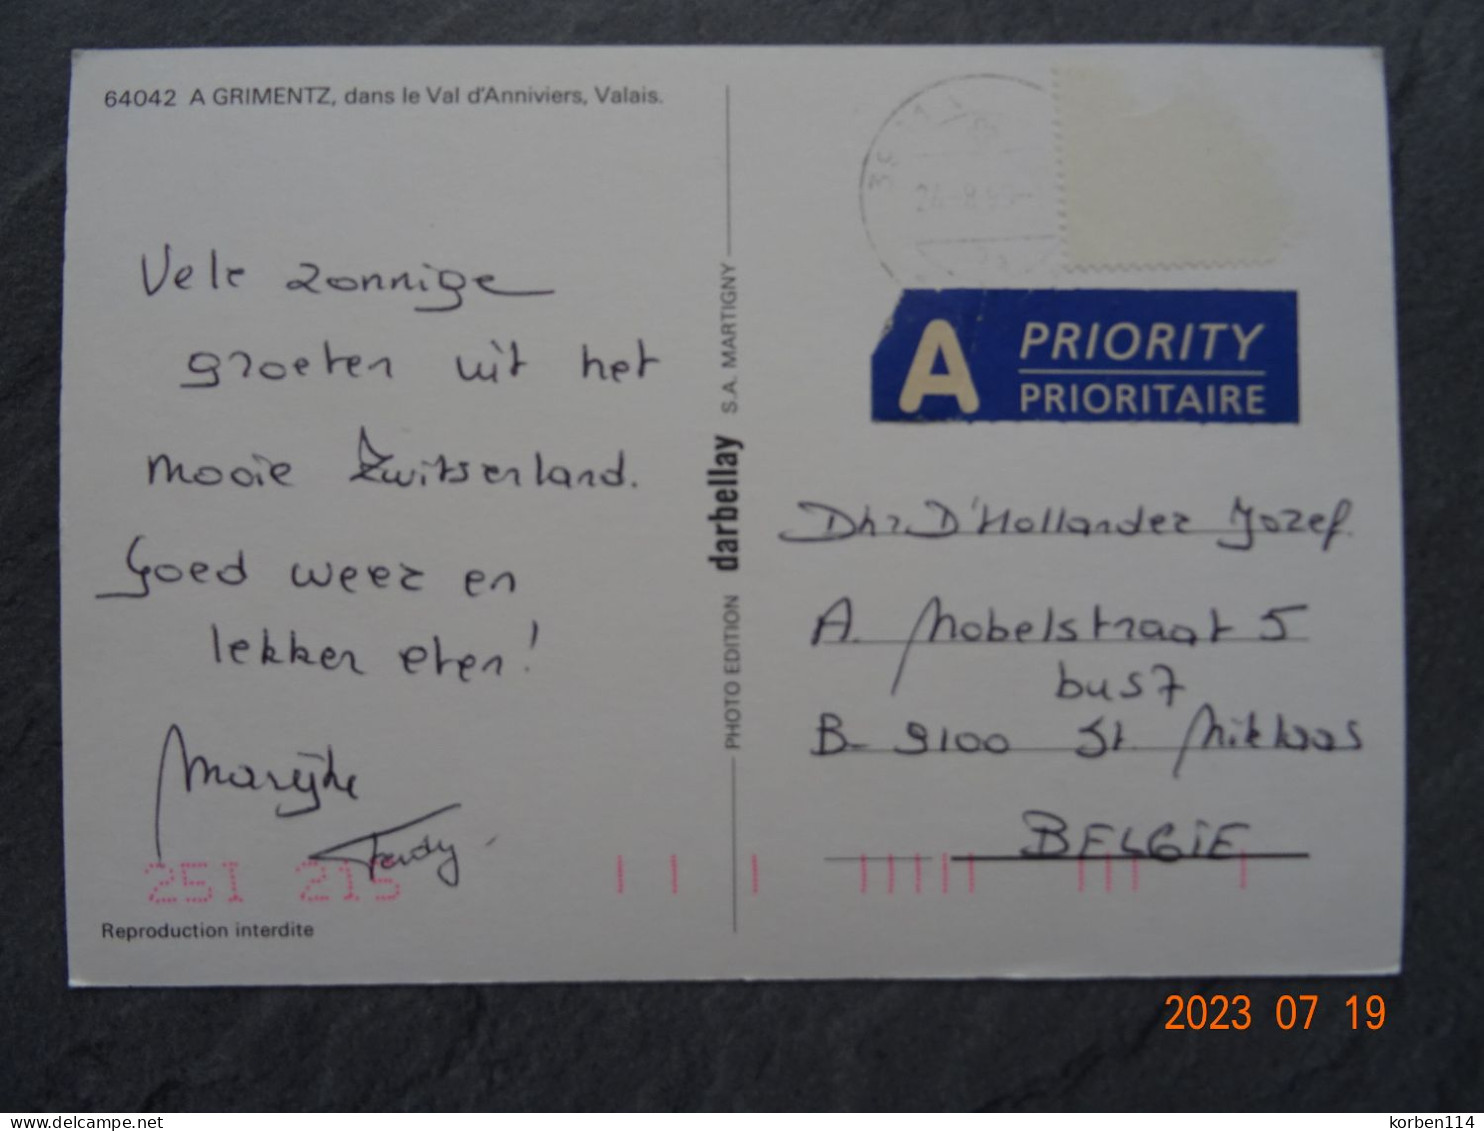 64042 A GRIMENTZ, dans le Val d'Anniviers, Valais.
Vele zonnige
groeten uit het
mooie Zwitserland.
Goed weer en
lekker eten!
Marijke
251 215
Reproduction interdite
PHOTO EDITION darbellay S.A. MARTIGNY
A PRIORITY
PRIORITAIRE
Dhr D'Hollander Jozef.
A. Nobelstraat 5
bus 7
B- 9100 St. Niklaas
BELGIE
2023 07 19
delcampe.net
korben114